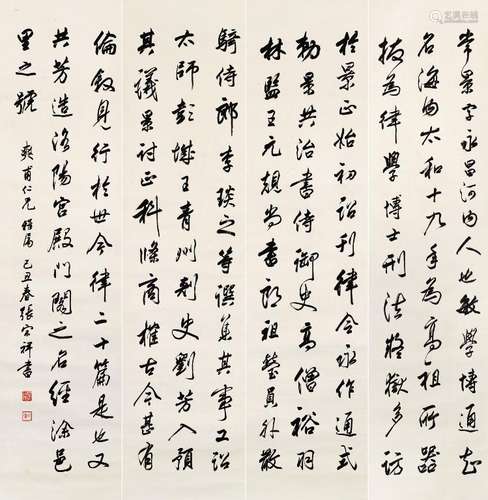 常景字永昌河内人也敏學博通知
名海内太和十九年為高祖所器
拔為律學博士刑法疑獄多訪
於景正始初詔刊律令永作通式
勅景共治書侍御史高僧裕羽
林監王元規尚書郎祖瑩員外散
騎侍郎李琰之等譔集其事又詔
太師彭城王青州刺史劉芳入預
其議景討正科條商榷古今甚有
倫敘見行於世今律二十篇是也又
共芳造洛陽宮殿門閣之名經涂邑
里之號
爽甫仁兄雅屬 己丑春張宗祥書